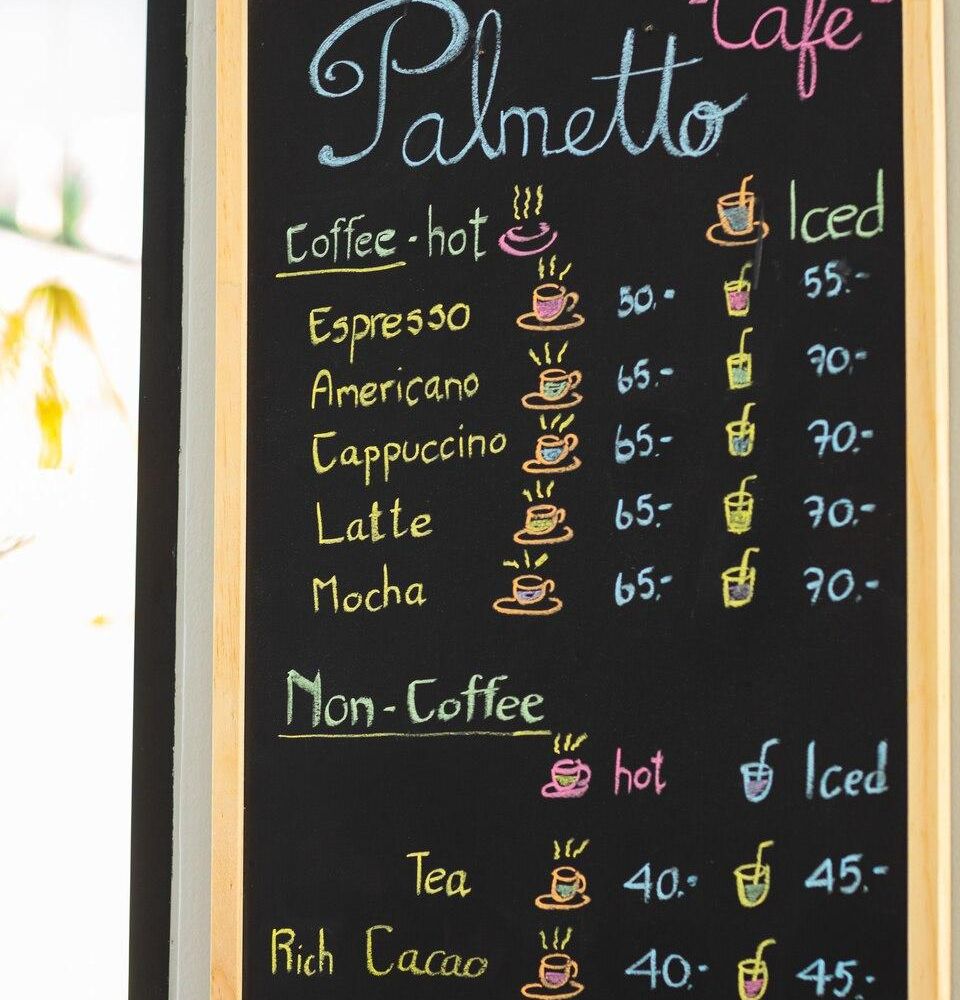 "Cafe"
Palmetto
Coffee - hot Iced
Espresso 50.- 55.-
Americano 65.- 70.-
Cappuccino 65.- 70.-
Latte 65.- 70.-
Mocha 65.- 70.-
Non-Coffee
hot Iced
Tea 40.- 45.-
Rich Cacao 40.- 45.-